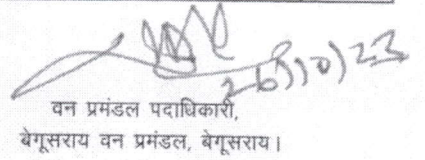 26/10/23
वन प्रमंडल पदाधिकारी,
बेगूसराय वन प्रमंडल, बेगूसराय।